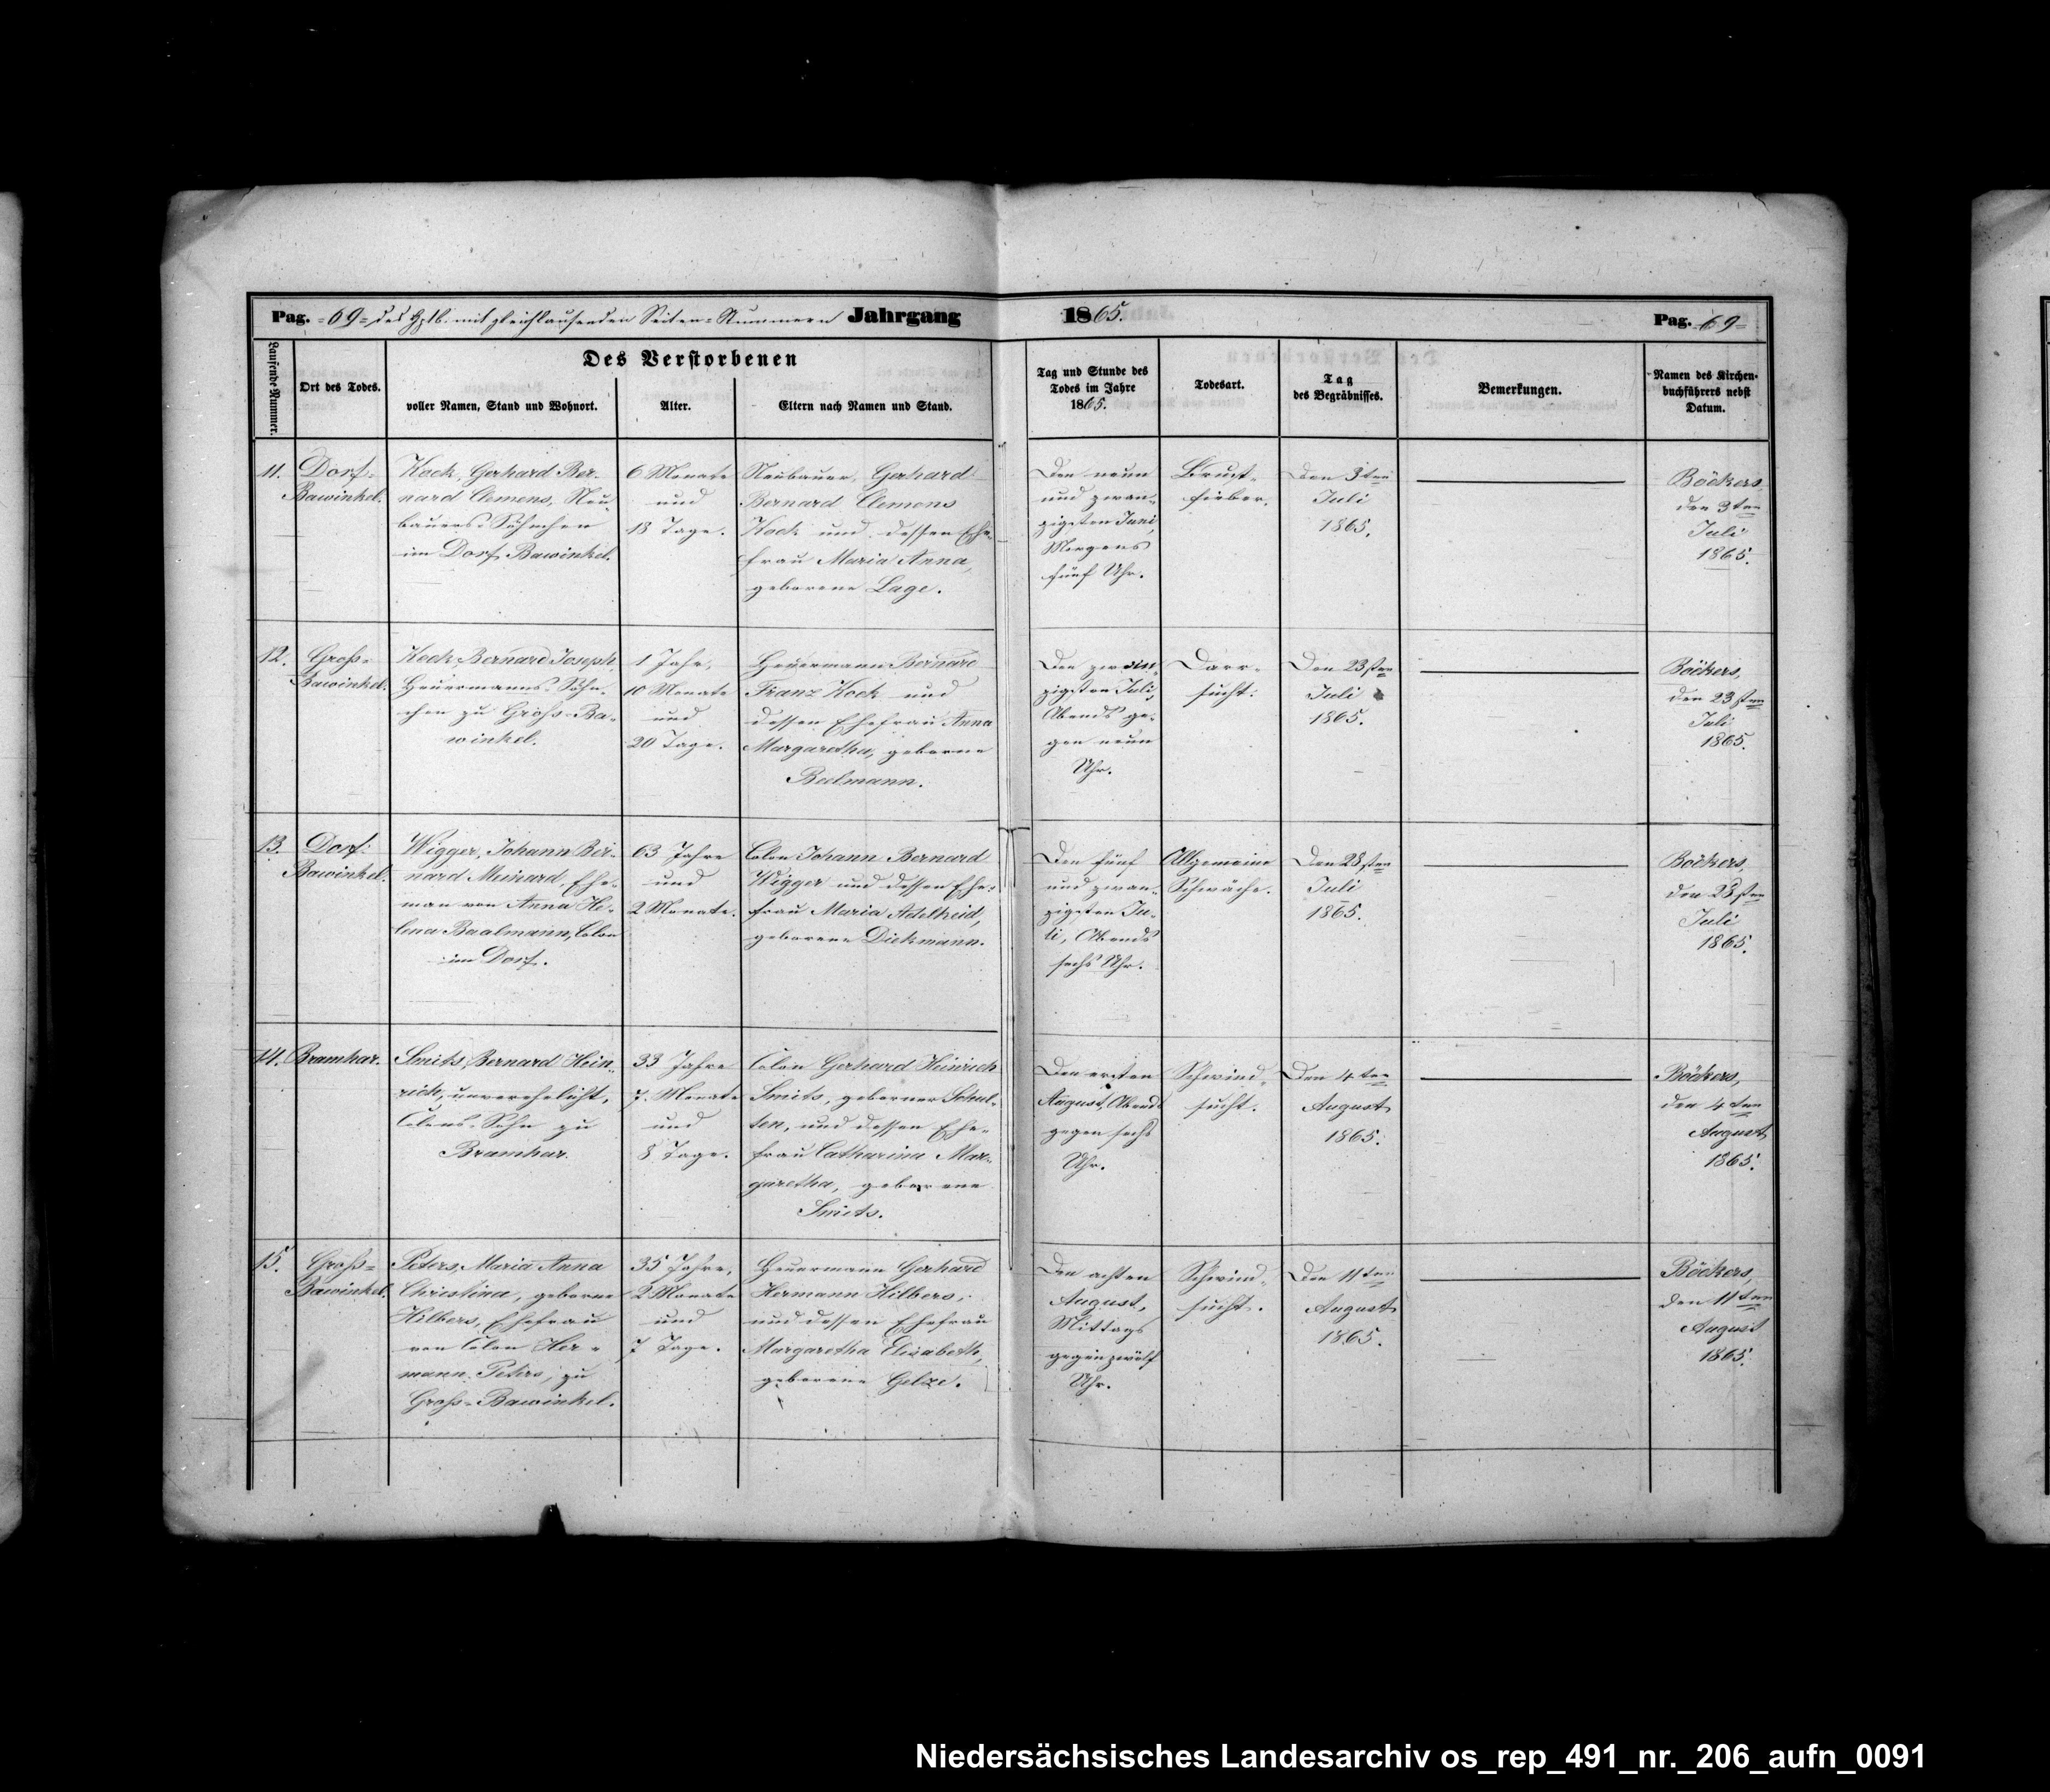 Pag. =69= des Hptb. mit gleichlautenden Seiten=Nummern Jahrgang 1865. Pag. =69=
Laufende Nummer.
Ort des Todes.
Des Verstorbenen
voller Namen, Stand und Wohnort.
Alter.
Eltern nach Namen und Stand.
Tag und Stunde des
Todes im Jahre
1865.
Todesart.
Tag
des Begräbnisses.
Bemerkungen.
Namen des Kirchen-
buchführers nebst
Datum.
11.
Dorf=
Bawinkel.
Kock, Gerhard Ber-
nard Clemens, Neu-
bauers=Söhnchen
im Dorf Bawinkel.
6 Monate
und
18 Tage.
Neubauer, Gerhard
Bernard Clemens
Kock und dessen Ehe-
frau Maria Anna,
geborene Lage.
Den neun
und zwan-
zigsten Juni,
Morgens
fünf Uhr.
Brust-
fieber.
Den 3ten
Juli
1865.
Böckers,
den 3ten
Juli
1865.
12.
Groß=
Bawinkel.
Kock, Bernard Joseph,
Heuermanns=Söhn-
chen zu Groß=Ba-
winkel.
1 Jahr,
10 Monate
und
20 Tage.
Heuermann Bernard
Franz Kock und
dessen Ehefrau Anna
Margaretha, geborne
Baalmann.
Den zwan-
zigsten Juli,
Abends ge-
gen neun
Uhr.
Darr-
sucht.
Den 23sten
Juli
1865.
Böckers,
den 23sten
Juli
1865.
13.
Dorf=
Bawinkel.
Wigger, Johann Ber-
nard Meinard, Ehe-
man von Anna He-
lena Baalmann, Colon
im Dorf.
63 Jahre
und
2 Monate.
Colon Johann Bernard
Wigger und dessen Ehe-
frau Maria Adelheid,
geborene Diekmann.
Den fünf
und zwan-
zigsten Ju-
li, Abends
sechs Uhr.
Allgemeine
Schwäche.
Den 28sten
Juli
1865.
Böckers,
den 28sten
Juli
1865.
14.
Bramhar.
Smits, Bernard Hein-
rich, unverehelicht,
Colons=Sohn zu
Bramhar.
33 Jahre
7 Monate
und
8 Tage.
Colon Gerhard Heinrich
Smits, geborner Schul-
ten, und dessen Ehe-
frau Catharina Mar-
garetha, geborene
Smits.
Den ersten
August, Abends
gegen sechs
Uhr.
Schwind-
sucht.
Den 4ten
August
1865.
Böckers,
den 4ten
August
1865.
15.
Groß=
Bawinkel.
Peters, Maria Anna
Christina, geborne
Hilbers, Ehefrau
von Colon Her-
mann Peters, zu
Groß=Bawinkel.
35 Jahre,
2 Monate
und
7 Tage.
Heuermann Gerhard
Hermann Hilbers,
und dessen Ehefrau
Margaretha Elisabeth,
geborene Gelze.
Den achten
August,
Mittags
gegen zwölf
Uhr.
Schwind-
sucht.
Den 11ten
August
1865.
Böckers,
den 11ten
August
1865.
Niedersächsisches Landesarchiv os_rep_491_nr._206_aufn_0091